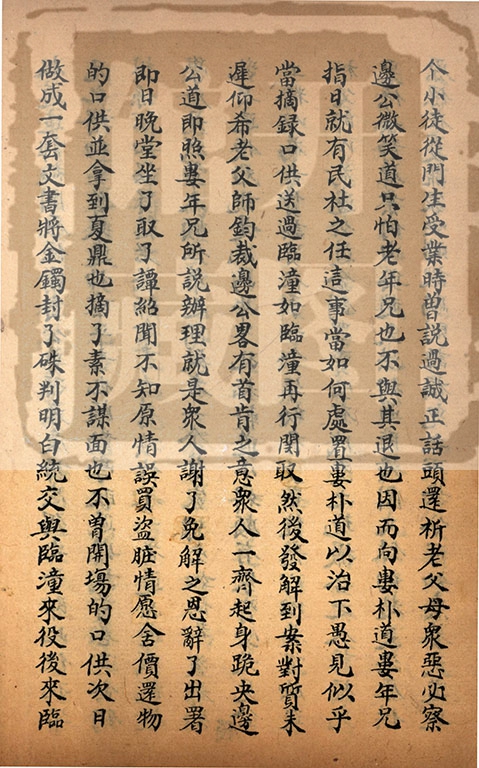 个小徒從門生受業時曾說過誠正話頭還祈老父母衆惡必察
邊公微笑道只怕老年兄也不與其退也因而向婁朴道婁年兄
指日就有民社之任這事當如何處置婁朴道以治下愚見似乎
當摘録口供送過臨潼如臨潼再行関取然後發解到案對質未
遲仰希老父師鈞裁邊公畧有首肯之意衆人一齊起身跪央邊
公道即照婁年兄所說辦理就是衆人謝了免解之恩辭了出署
即日晚堂坐了取了譚紹聞不知原情誤買盜賍情愿舍價還物
的口供並拿到夏鼎也摘了素不謀面也不曽開場的口供次日
做成一套文書將金鐲封了硃判明白統交與臨潼來役後來臨